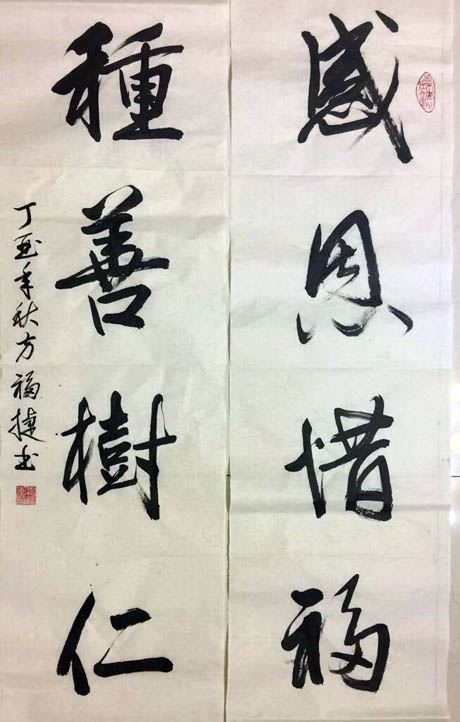 感恩惜福
種善樹仁
丁酉年秋方福捷书